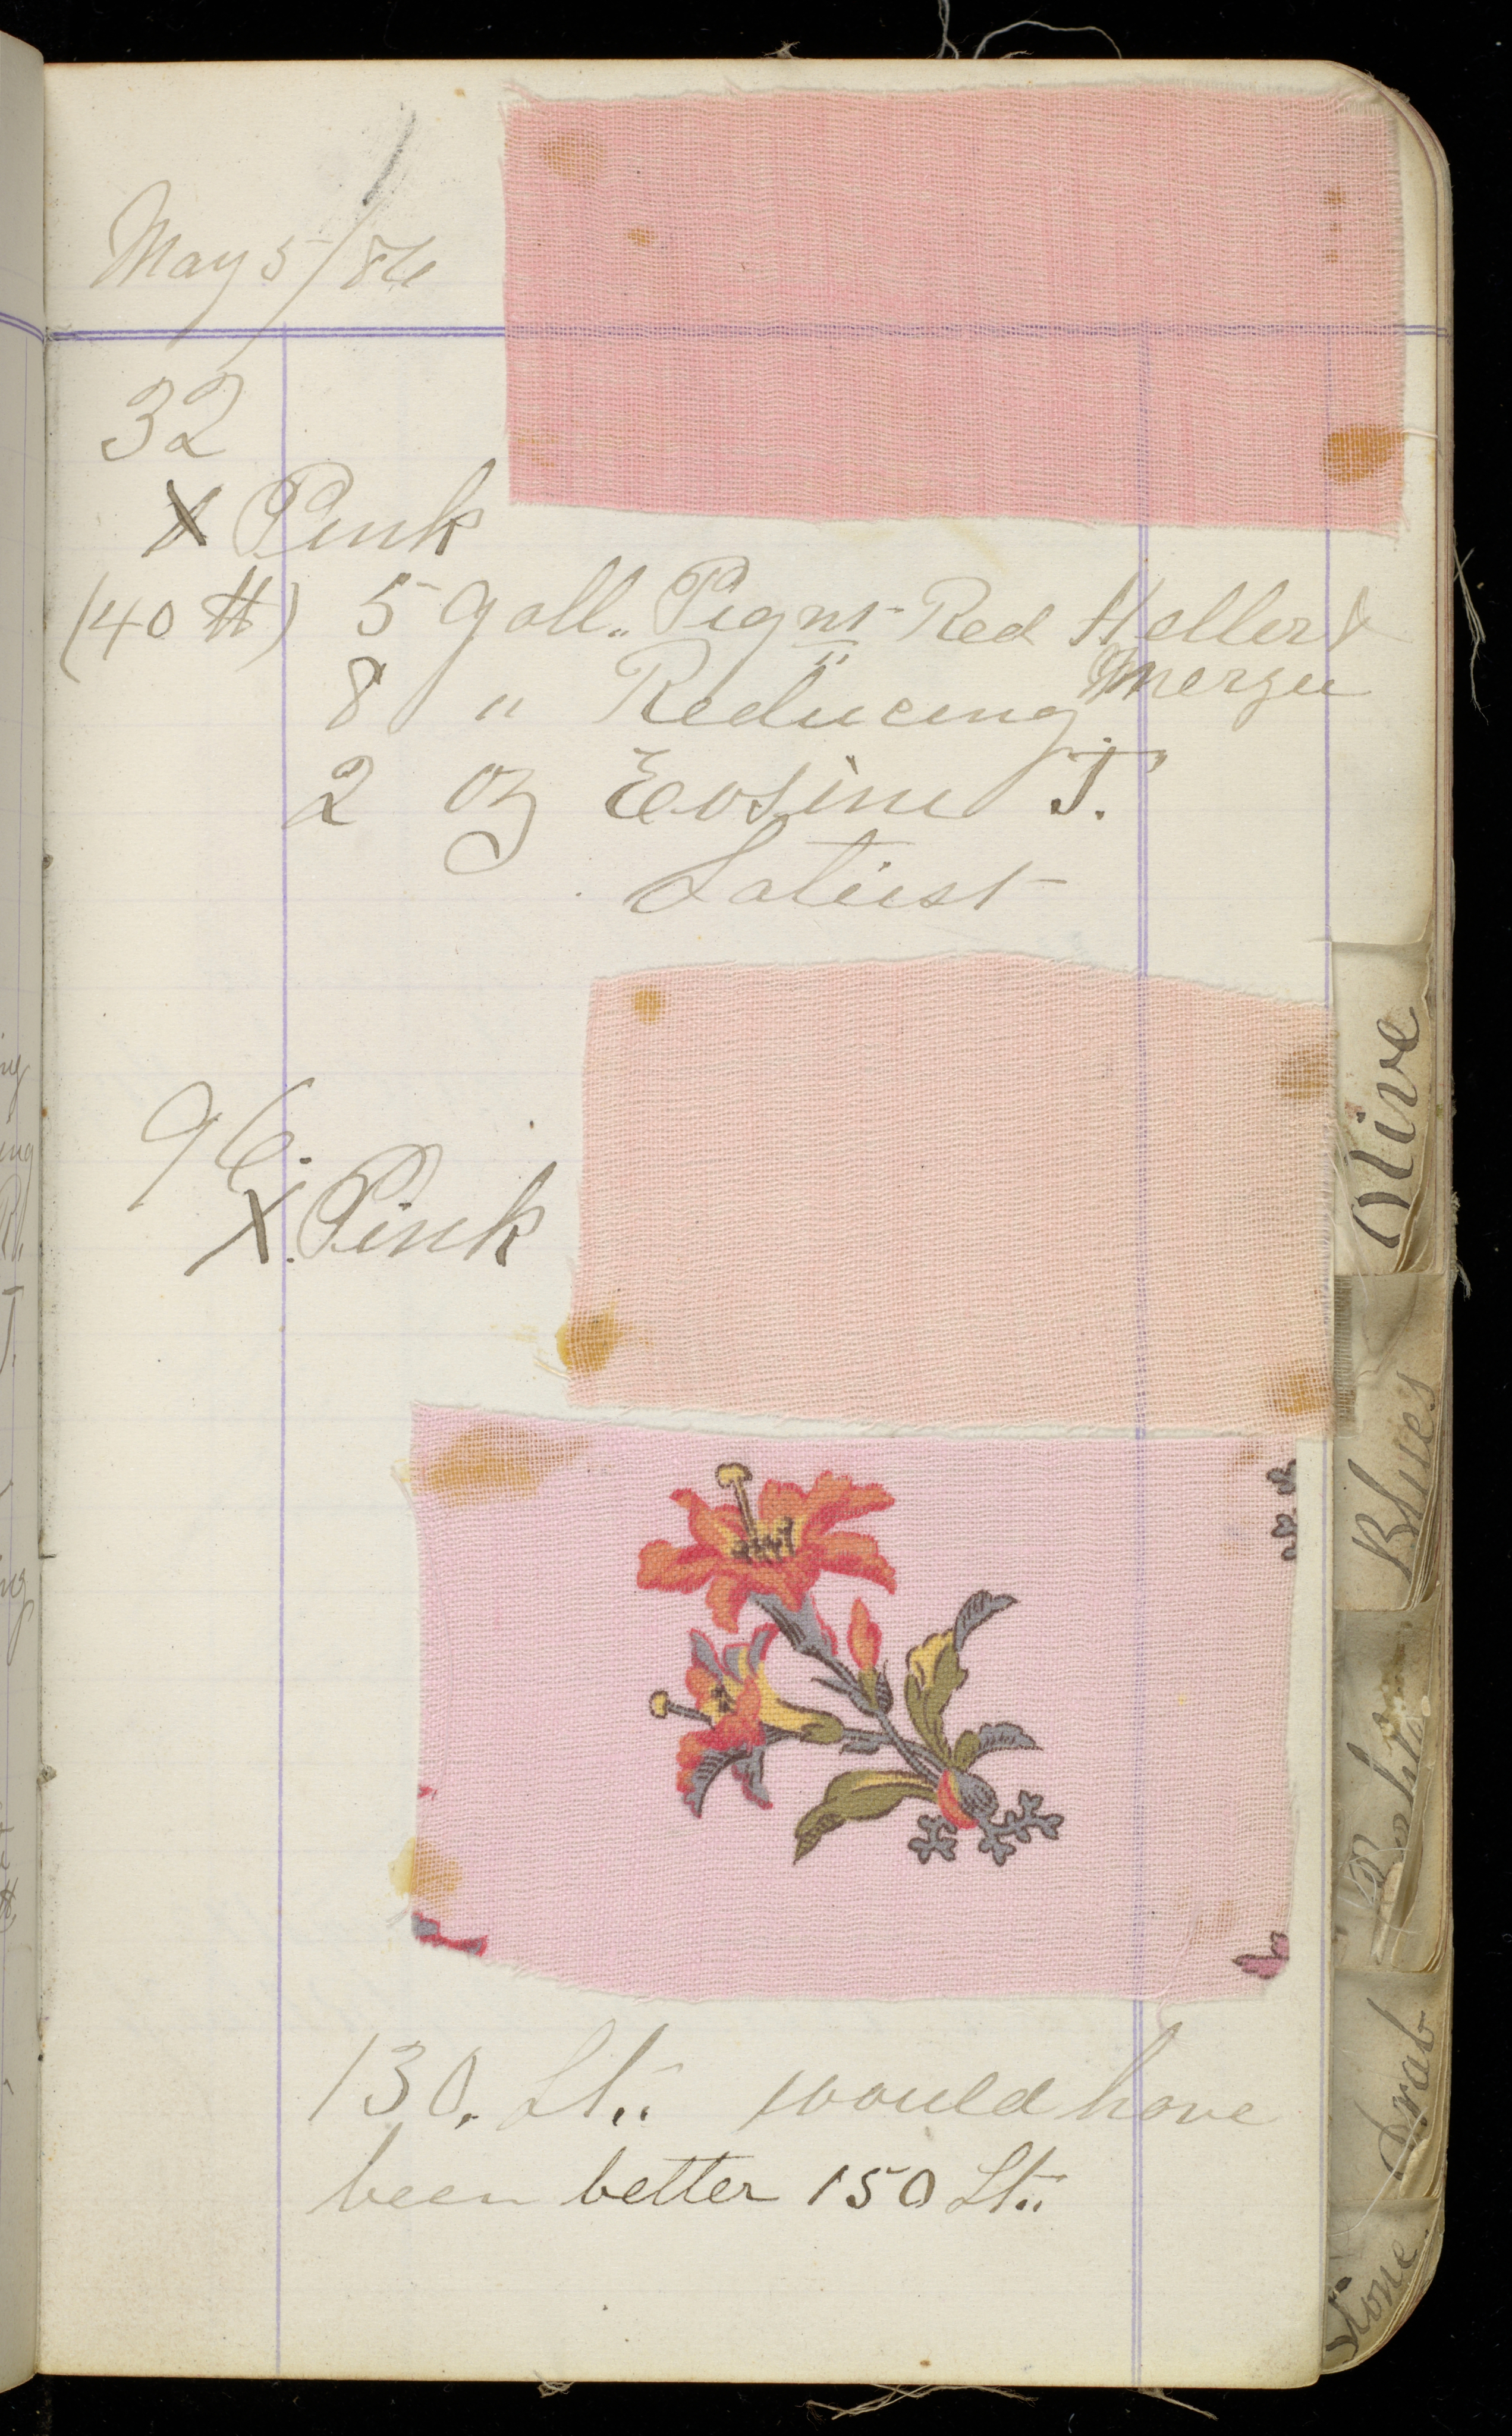 May 5/86
32
X Pink
(40 ℔) 5 Gall. Pigmt Red Heller &
Merz
8 " Reducing
2 oz Eosine J.
Latest
96.
X. Pink
130. Lt. would have
been better 150 Lt.
Olive
Blues
Drab
Stone